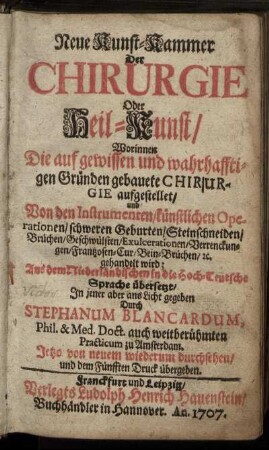 Neue Kunst-Kammer
Der
CHIRURGIE
Oder
Heil-Kunst/
Worinnen
Die auf gewissen und wahrhaffti-
gen Gründen gebauete CHIRUR-
GIE aufgestellet/
und
Von den Instrumenten/ künstlichen Ope-
rationen/ schweren Geburten/ Steinschneiden/
Brüchen/ Geschwülsten/ Exulcerationen/ Verrenckun-
gen/ Frantzosen-Cur/ Bein-Brüchen/ ꝛc.
gehandelt wird:
Aus dem Niederländischen in die Hoch-Teutsche
Sprache übersetzt/
In jener aber ans Licht gegeben
Durch
STEPHANUM BLANCARDUM,
Phil. & Med. Doct. auch weitberühmten
Practicum zu Amsterdam.
Jetzo von neuem wiederum durchsehen/
und dem Fünfften Druck übergeben.
Franckfurt und Leipzig/
Verlegts Ludolph Henrich Hauenstein/
Buchhändler in Hannover. An. 1707.